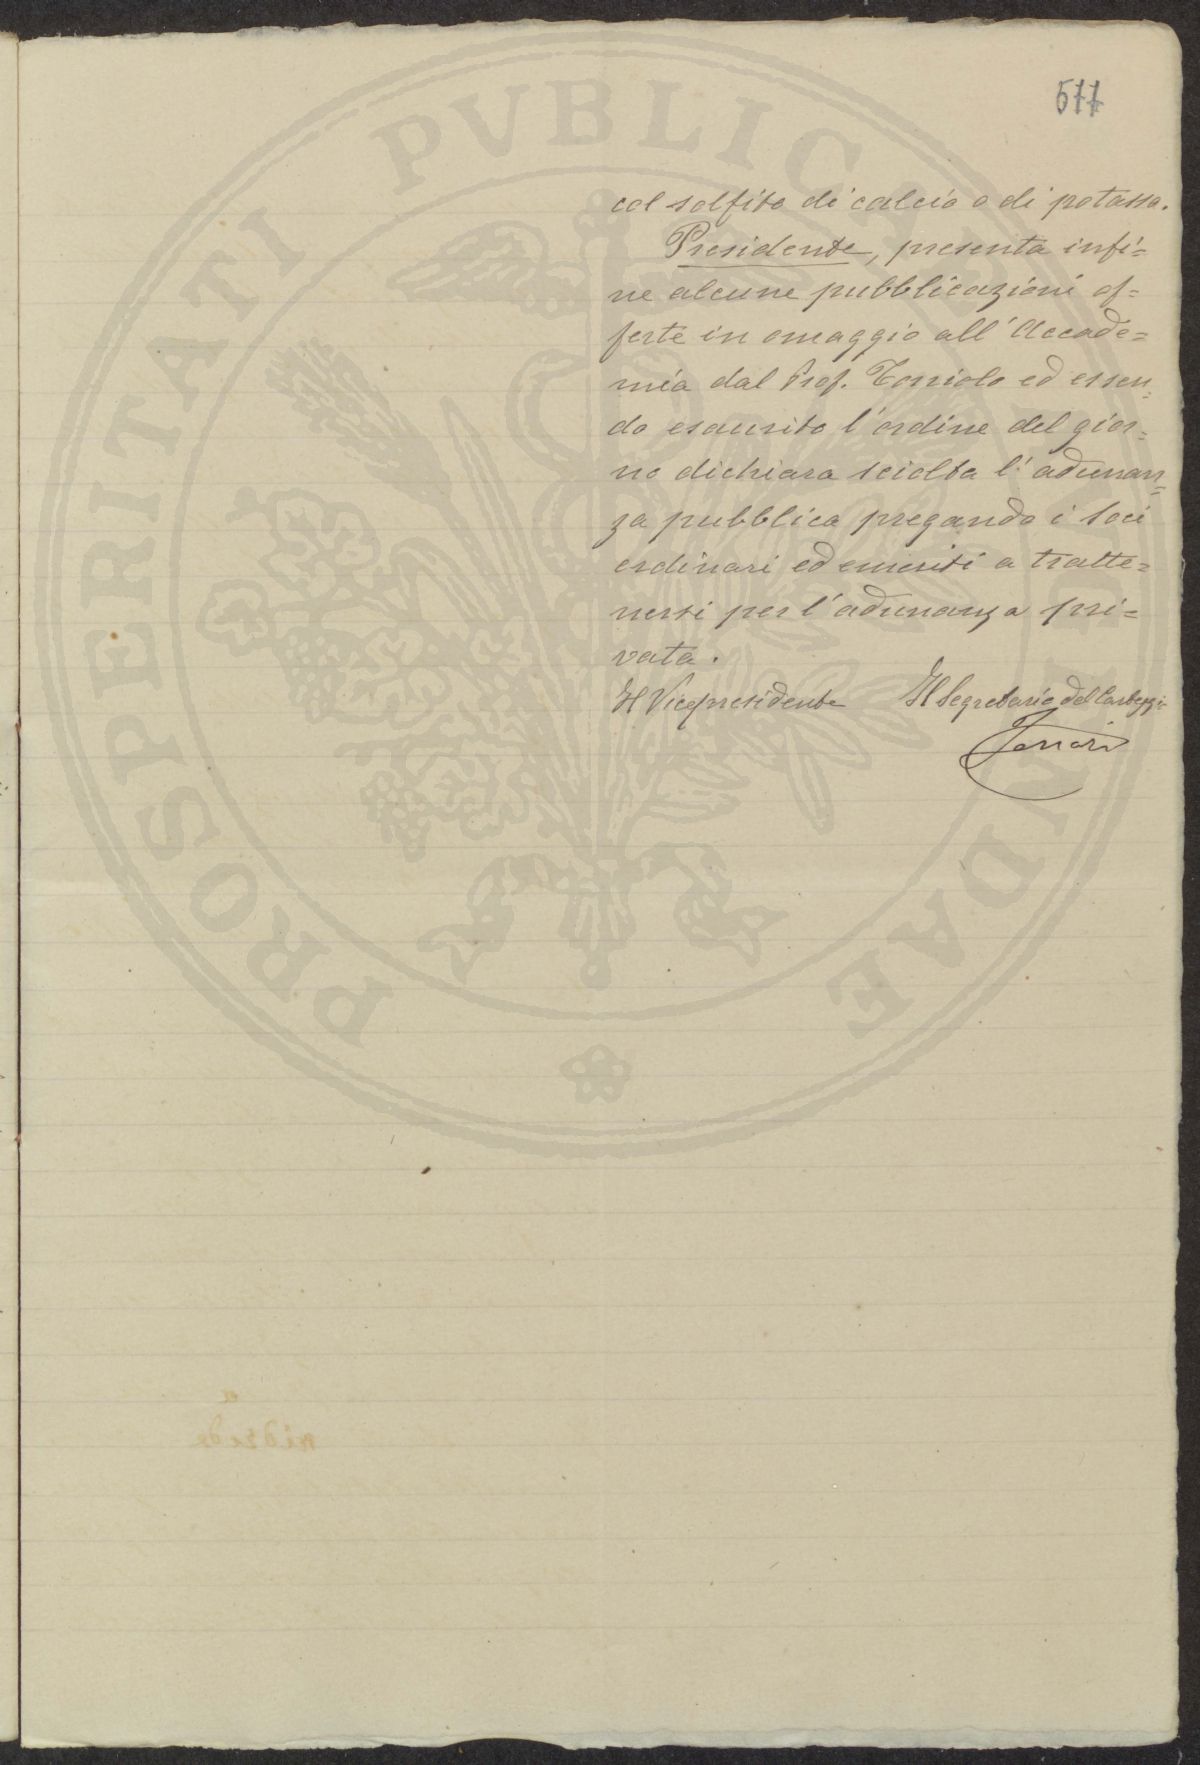 577
col solfito di calcio o di potassa.
Presidente, presenta infi=
ne alcune pubblicazioni of=
ferte in omaggio all'Accade=
mia dal Prof. ed essen=
do esaurito l'ordine del gior=
no dichiara sciolta l'adunan=
za pubblica pregando i Soci
ordinari ed emeriti a tratte=
nersi per l'adunanza pri=
vata.
Il Vicepresidente Il Segretario del
PROSPERITATI PVBLICAE